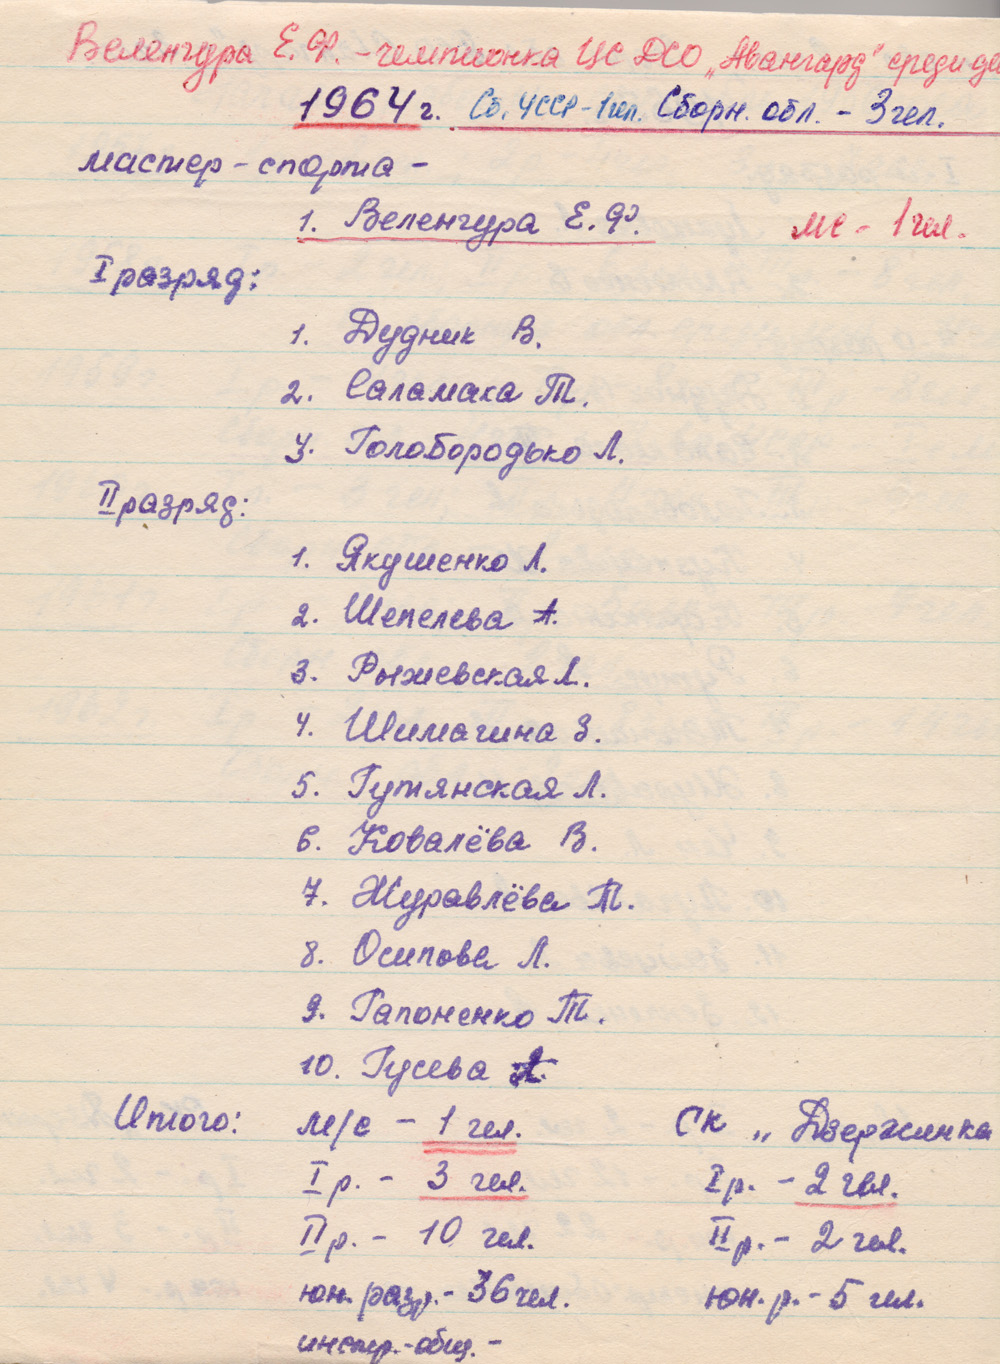 Веленгура Е.Ф. - чемпионка ЦС ДСО „Авангард" среди де
1964 г. Сб. УССР - 1 чел. Сборн. обл. - 3 чел.
мастер - спорта -
1. Веленгура Е.Ф. МС - 1 чел.
I разряд:
1. Дудник В.
2. Саламаха Т.
3. Голобородько Л.
II разряд:
1. Якушенко Л.
2. Шепелева А.
3. Рыжевская Л.
4. Шимагина З.
5. Гутянская Л.
6. Ковалёва В.
7. Журавлёва Т.
8. Осипова Л.
9. Гапоненко Т.
10. Гусева
Итого: м/с - 1 чел. СК „Дзержинка
I р. - 3 чел. I р. - 2 чел.
II р. - 10 чел. II р. - 2 чел.
юн. разр. - 36 чел. юн. р. - 5 чел.
инстр.-общ. -